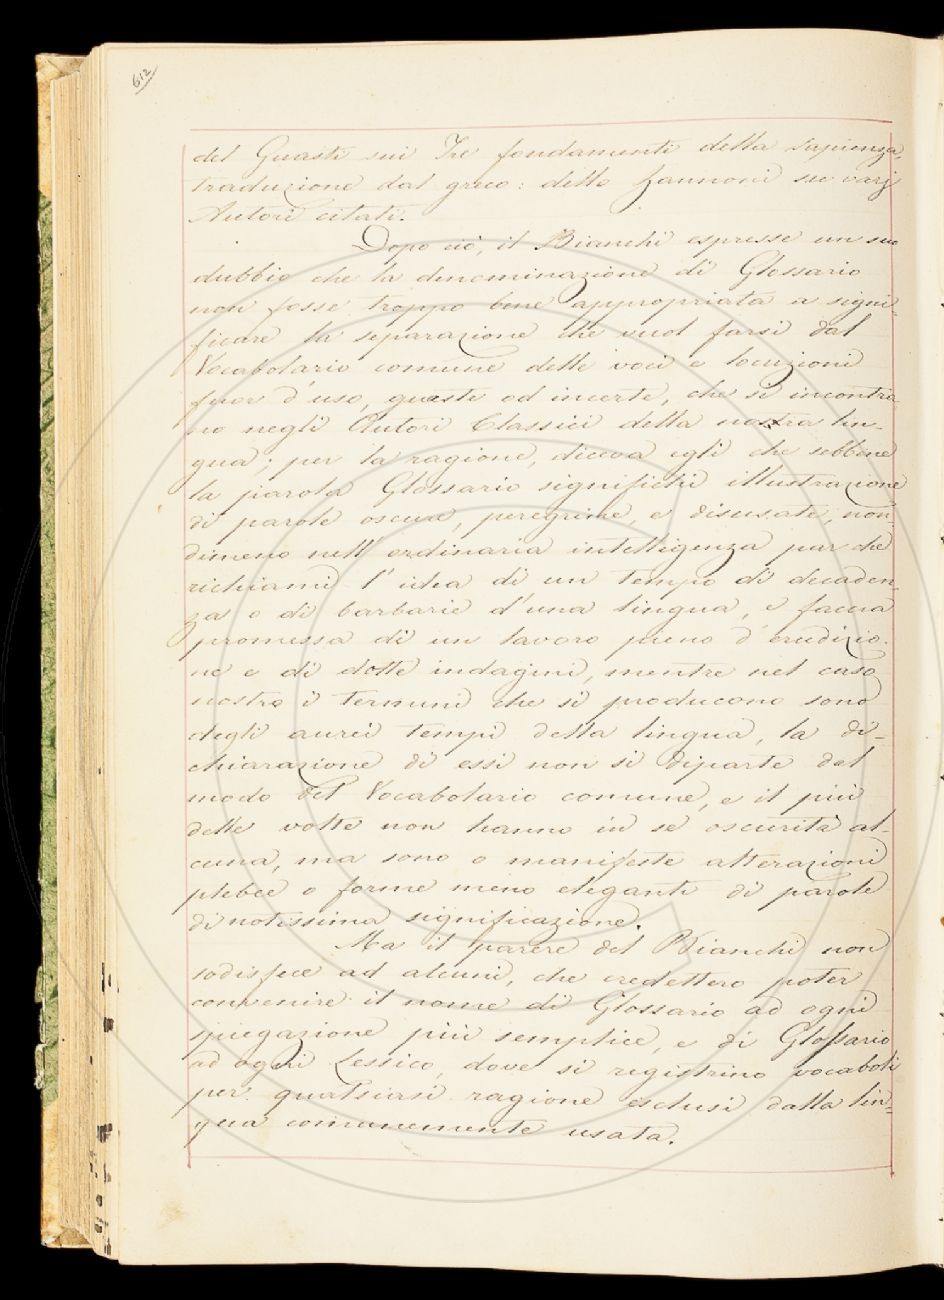 612
del Guasti sui Tre fondamenti della Sapienza,
traduzione dal greco: dello Zannoni su varj
Autori citati.
Dopo ciò, il Bianchi espresse un suo
dubbio che la denominazione di Glossario
non fosse troppo bene appropriata a signi-
ficare la separazione che vuol farsi dal
Vocabolario comune delle voci e locuzioni
fuor d'uso, guaste od incerte, che si incontra
no negli Autori Classici della nostra lin-
gua; per la ragione, diceva egli che sebbene
la parola Glossario significhi illustrazione
di parole oscure, peregrine, e disusate, non
dimeno nell'ordinaria intelligenza par che
richiami l'idea di un tempo di decaden
za o di barbarie d'una lingua, e faccia
promessa di un lavoro pieno d'erudizio-
ne e di dotte indagini, mentre nel caso
nostro i termini che si producono sono
degli aurei tempi della lingua, la di-
chiarazione di essi non si diparte dal
modo del Vocabolario comune, e il più
delle volte non hanno in sè oscurità al-
cuna, ma sono o manifeste alterazioni
plebee o forme meno eleganti di parole
di notissima significazione.
Ma il parere del Bianchi non
sodisfece ad alcuni, che credettero poter
convenire il nome di Glossario ad ogni
spiegazione più semplice, e di Glossario
ad ogni Lessico, dove si registrino vocaboli
per qualsiasi ragione esclusi dalla lin-
gua comunemente usata.